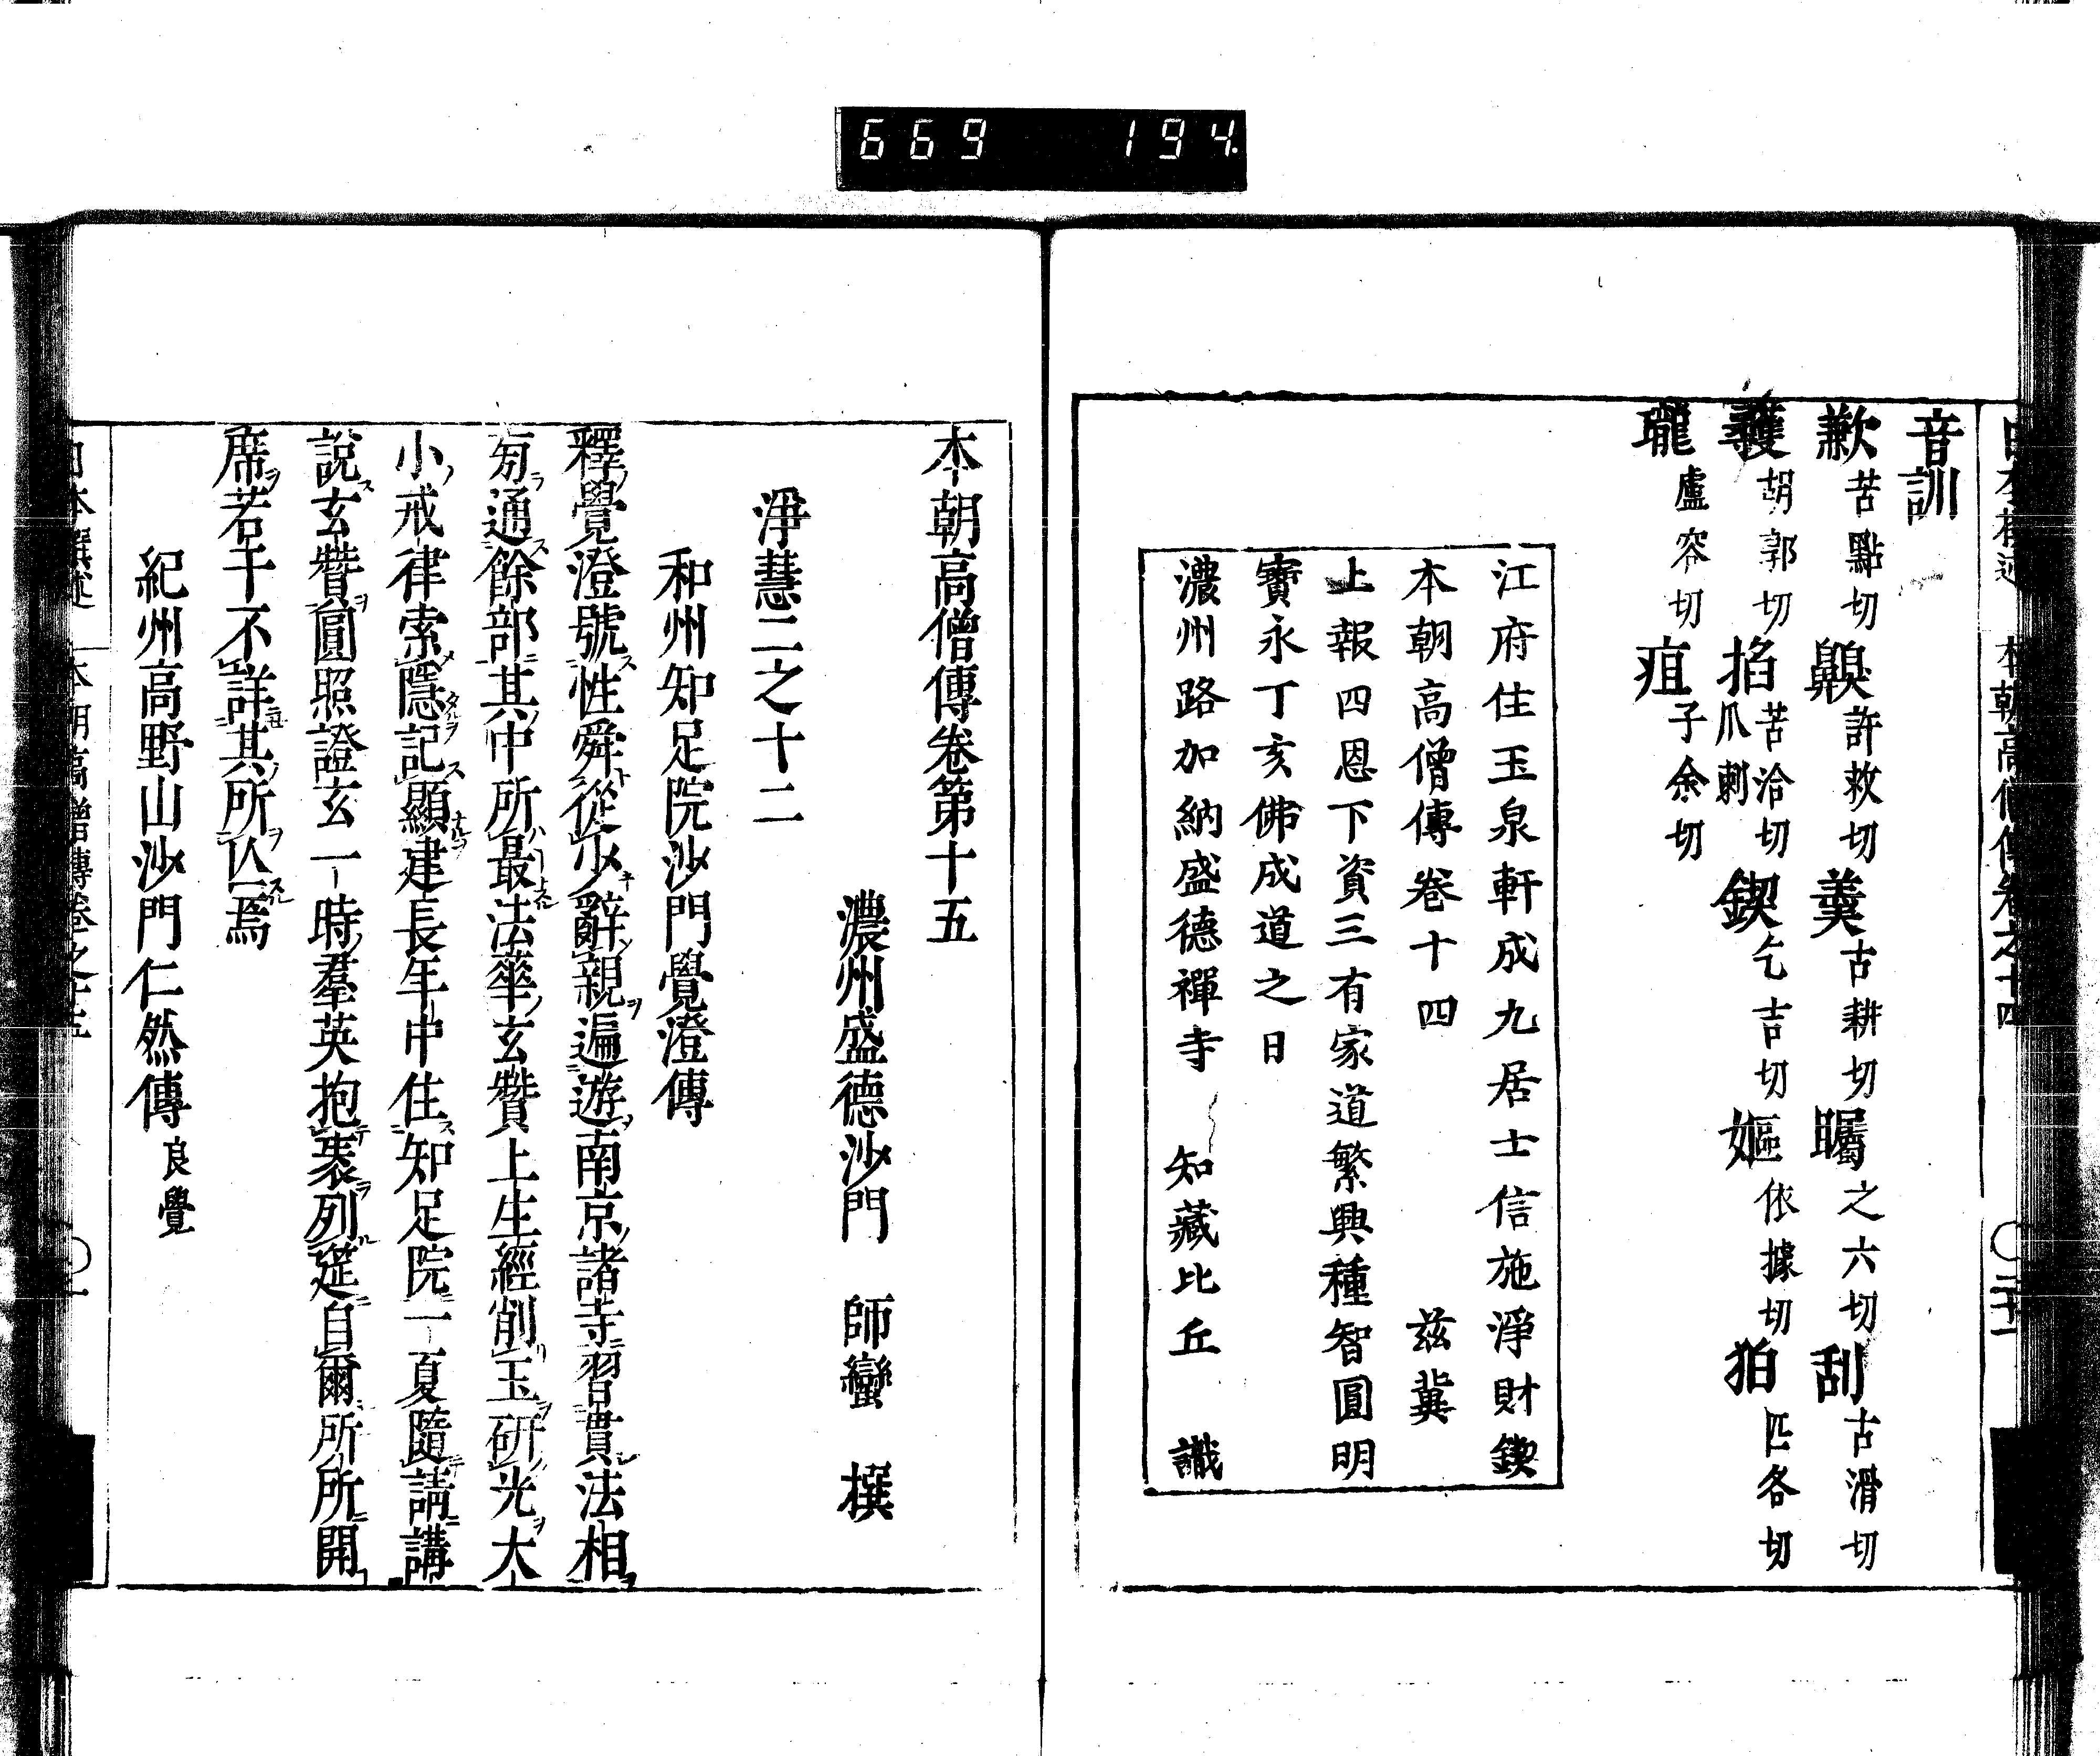 669 194.
音訓
歉苦點切 齅許救切 羹古耕切 矚之六切 刮古滑切
頀胡郭切 掐苦洽切爪刺 鍥乞吉切 嫗依據切 狛匹各切
瓏盧容切 疽子余切
江府住玉泉軒成九居士信施淨財鍥
本朝高僧傳卷十四 茲冀
上報四恩下資三有家道繁興種智圓明
寶永丁亥佛成道之日
濃州路加納盛德禪寺 知藏比丘 識
本朝高僧傳卷第十五
濃州盛德沙門 師蠻 撰
淨慧二之十二
和州知足院沙門覺澄傳
釋覺澄號性舜從少辭親遍遊南京諸寺習貫法相
旁通餘部其中所最法華玄贊上生經削玉研光大
小戒律索隱記顯建長年中住知足院一夏隨請講
說玄贊圓照證玄一時羣英抱袠列筵自爾所所開
席若干不詳其所亾焉
紀州高野山沙門仁然傳 良覺
日本撰述 本朝高僧傳卷之十五 〇一